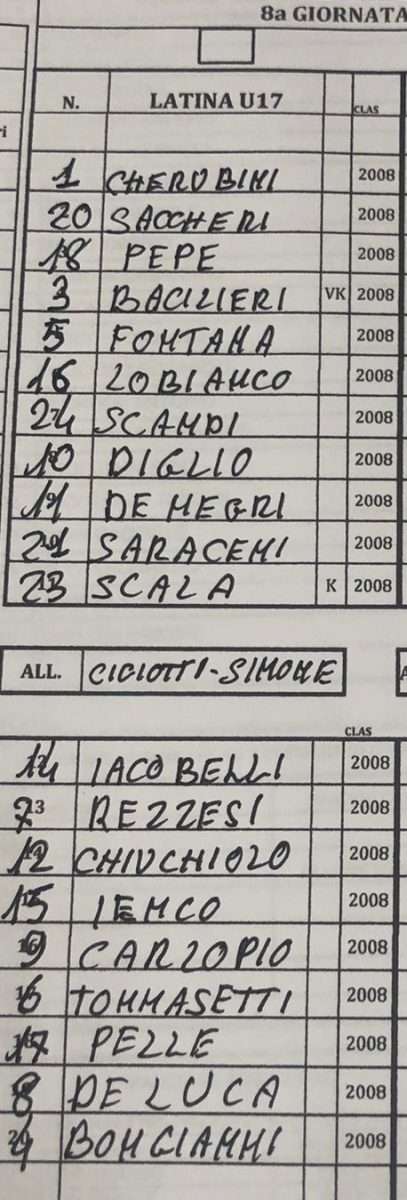 8a GIORNATA
N. LATINA U17 CLAS
1 CHERUBINI 2008
20 SACCHERI 2008
18 PEPE 2008
3 BACILIERI VK 2008
5 FONTANA 2008
16 LOBIANCO 2008
24 SCANDI 2008
10 DIGLIO 2008
11 DE NEGRI 2008
21 SARACENI 2008
23 SCALA K 2008
ALL. CICIOTTI-SIMONE
CLAS
14 IACOBELLI 2008
7 REZZESI 2008
12 CHIUCHIOLO 2008
15 IENCO 2008
9 CARLOPIO 2008
6 TOMMASETTI 2008
17 PELLE 2008
8 DE LUCA 2008
4 BONGIANNI 2008